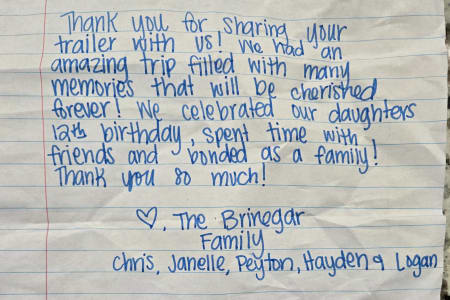 Thank you for sharing your
trailer with us! We had an
amazing trip filled with many
memories that will be cherished
forever! We celebrated our daughters
12th birthday, spent time with
friends and bonded as a family!
Thank you so much!
♡, The Brinegar
Family
Chris, Janelle, Peyton, Hayden & Logan